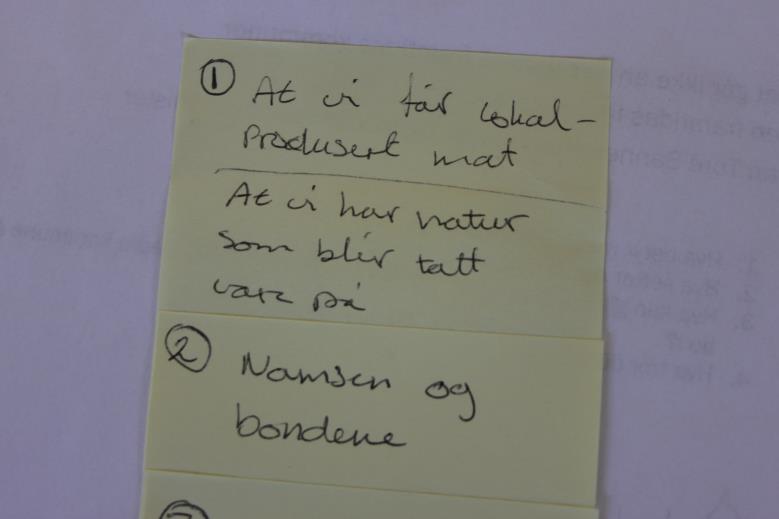 ① At vi får lokal-
produsert mat
At vi har natur
som blir tatt
vare på
② Namsen og
bøndene